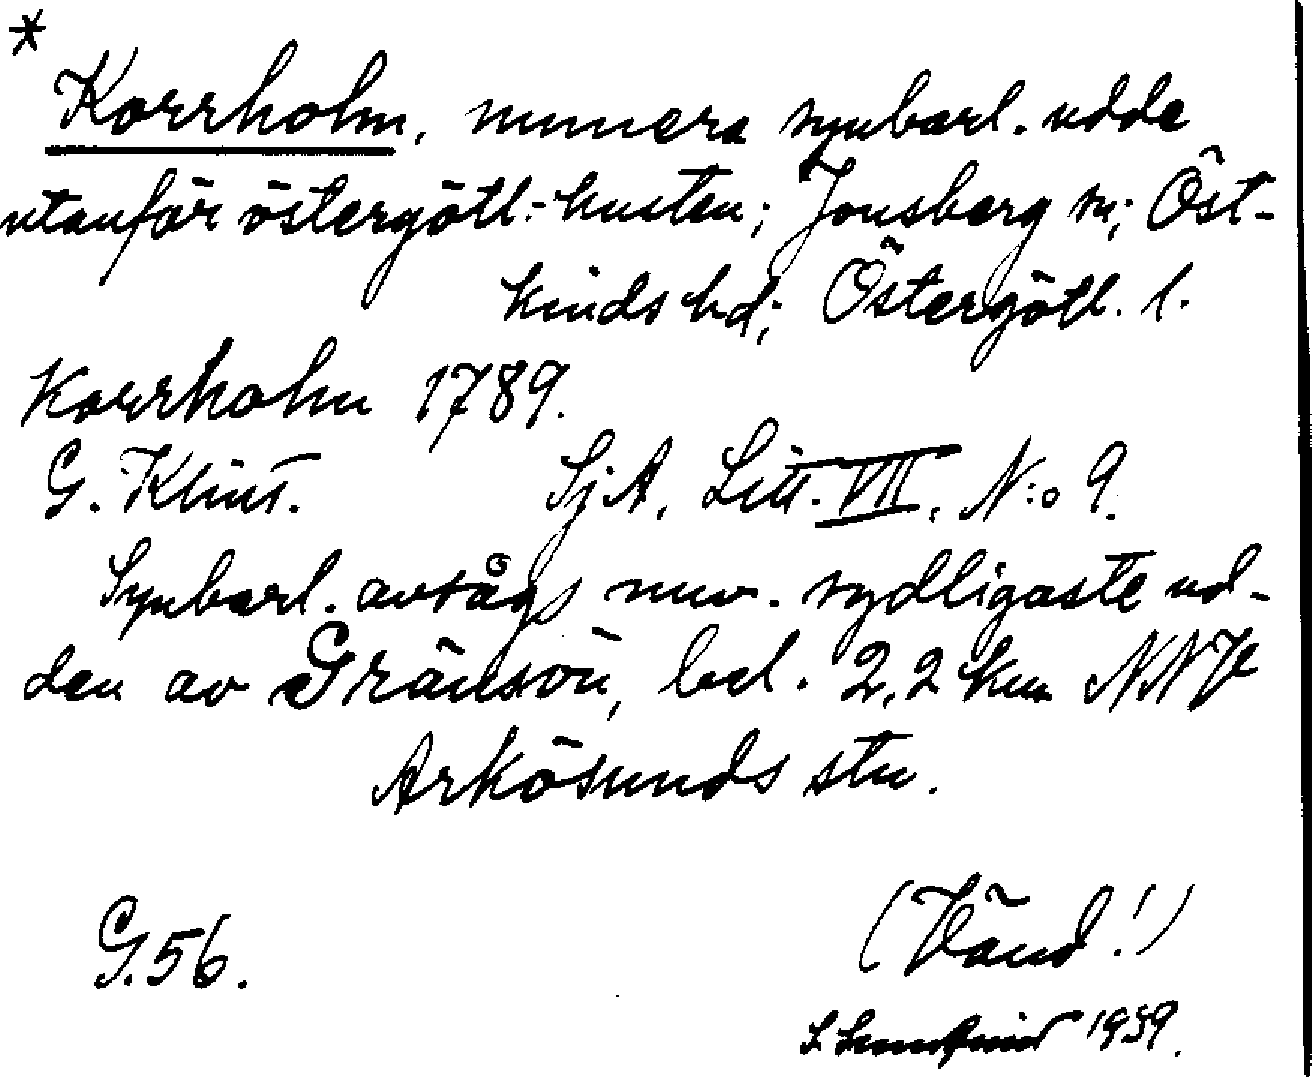 *
Korrholm, numera synbarl. udde
utanför östergötl:-kusten; Jonsberg sn; Öst-
kinds hd; Östergötl. l.
Korrholm 1789.
G. Klint. SjA, Litt. VII, N:o 9.
Synbarl. avsågs nuv. sydligaste ud-
den av Gränsön, bel. 2,2 km NNV
Arkösunds stn.
G. 56.
(Vänd!)
S. 1939.